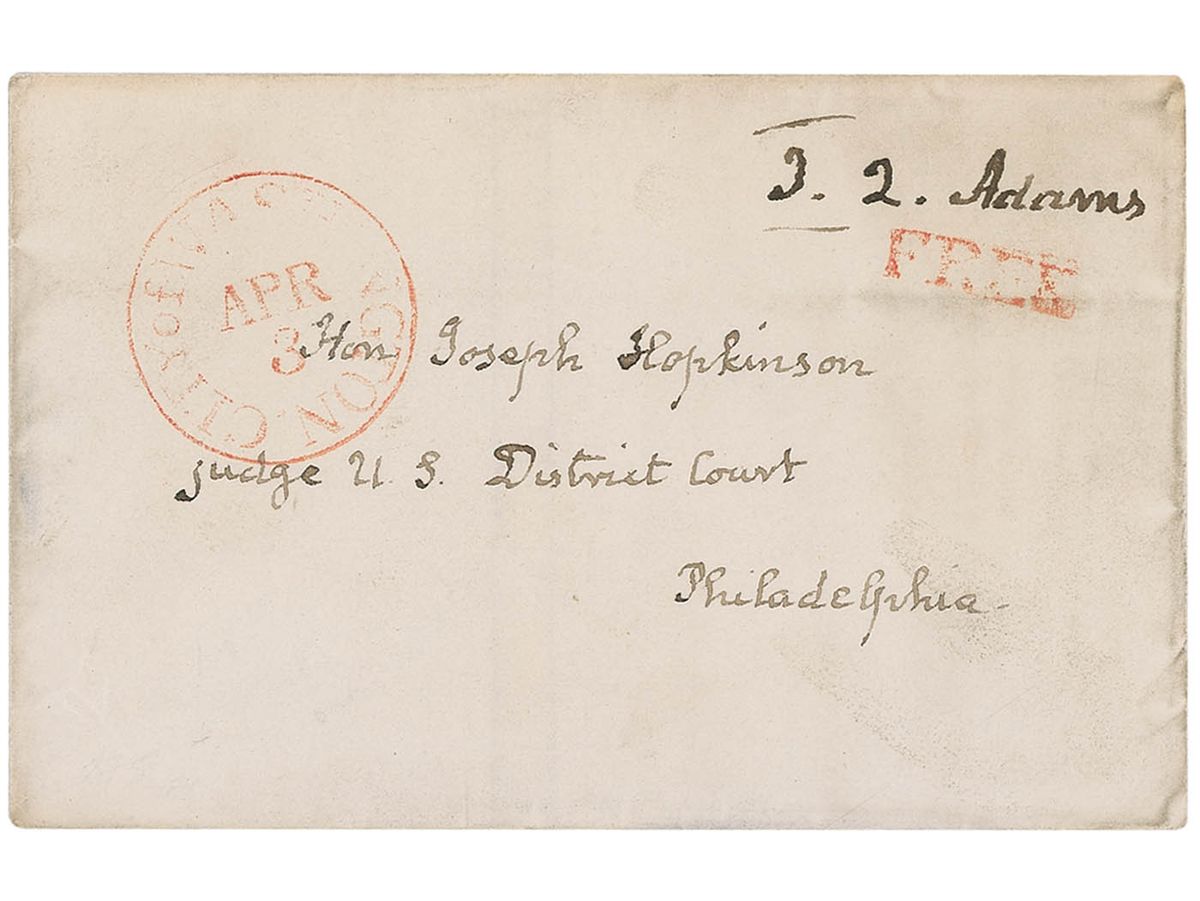 J. Q. Adams
FREE
CITY of WASHINGTON
APR
3
Hon Joseph Hopkinson
judge U. S. District Court
Philadelphia